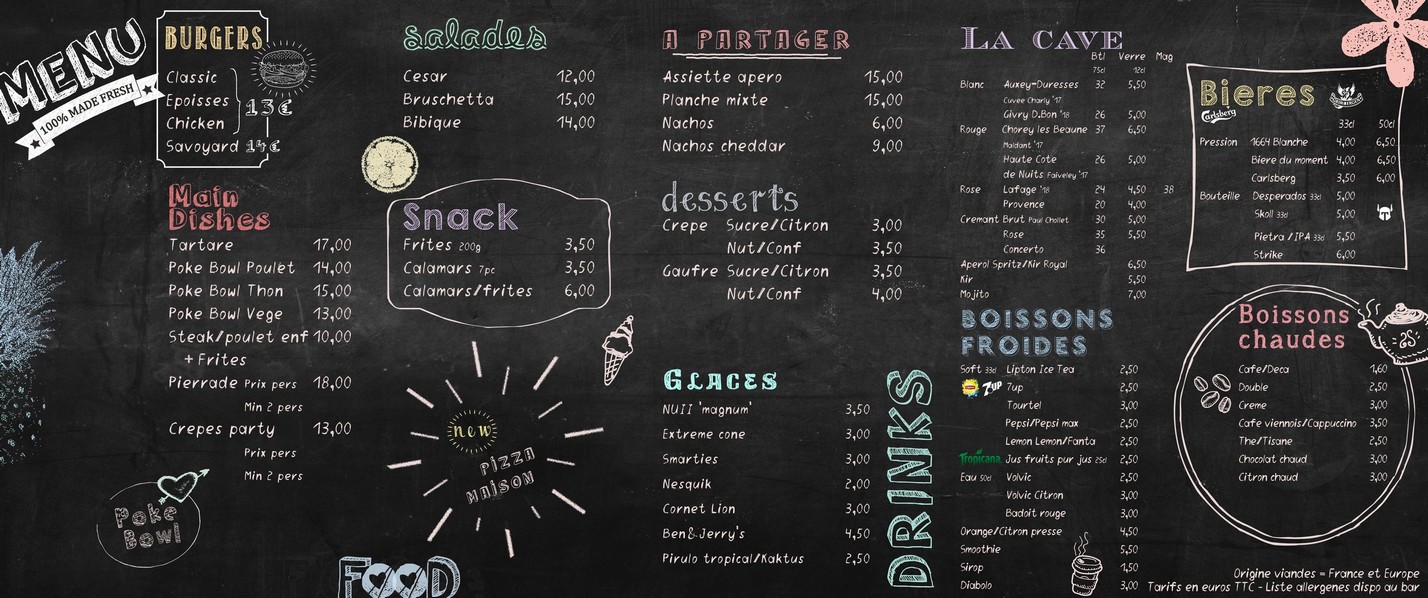 MENU
100% MADE FRESH
BURGERS
Classic
Epoisses
Chicken
13€
Savoyard 14€
Main
Dishes
Tartare 17,00
Poke Bowl Poulet 14,00
Poke Bowl Thon 15,00
Poke Bowl Vege 13,00
Steak/poulet enf 10,00
+ Frites
Pierrade Prix pers 18,00
Min 2 pers
Crepes party 13,00
Prix pers
Min 2 pers
Poke
Bowl
salades
Cesar 12,00
Bruschetta 15,00
Bibique 14,00
Snack
Frites 200g 3,50
Calamars 7pc 3,50
Calamars/frites 6,00
new
PIZZA
MAISON
FOOD
A PARTAGER
Assiette apero 15,00
Planche mixte 15,00
Nachos 6,00
Nachos cheddar 9,00
desserts
Crepe Sucre/Citron 3,00
Nut/Conf 3,50
Gaufre Sucre/Citron 3,50
Nut/Conf 4,00
GLACES
NUII 'magnum' 3,50
Extreme cone 3,00
Smarties 3,00
Nesquik 2,00
Cornet Lion 3,00
Ben&Jerry's 4,50
Pirulo tropical/Kaktus 2,50
DRINKS
LA CAVE
Btl Verre Mag
75cl 12cl
Blanc Auxey-Duresses 32 5,50
Cuvee Charly '17
Givry D.Bon '18 26 5,00
Rouge Chorey les Beaune 37 6,50
Maldant '17
Haute Cote 26 5,00
de Nuits Faiveley '17
Rose Lafage '18 24 4,50 38
Provence 20 4,00
Cremant Brut Paul Chollet 30 5,00
Rose 35 5,50
Concerto 36
Aperol Spritz/Kir Royal 6,50
Kir 5,50
Mojito 7,00
BOISSONS
FROIDES
Soft 33cl Lipton Ice Tea 2,50
7UP 7up 2,50
Tourtel 3,00
Pepsi/Pepsi max 2,50
Lemon Lemon/Fanta 2,50
Tropicana Jus fruits pur jus 25cl 2,50
Eau 50cl Volvic 2,50
Volvic Citron 3,00
Badoit rouge 3,00
Orange/Citron presse 4,50
Smoothie 5,50
Sirop 1,50
Diabolo 3,00
Bieres
Carlsberg
33cl 50cl
Pression 1664 Blanche 4,00 6,50
Biere du moment 4,00 6,50
Carlsberg 3,50 6,00
Bouteille Desperados 33cl 5,00
Skoll 33cl 5,00
Pietra /IPA 33cl 5,50
Strike 6,00
Boissons
chaudes
Cafe/Deca 1,60
Double 2,50
Creme 3,00
Cafe viennois/Cappuccino 3,50
The/Tisane 2,50
Chocolat chaud 3,00
Citron chaud 3,00
Origine viandes = France et Europe
Tarifs en euros TTC - Liste allergenes dispo au bar